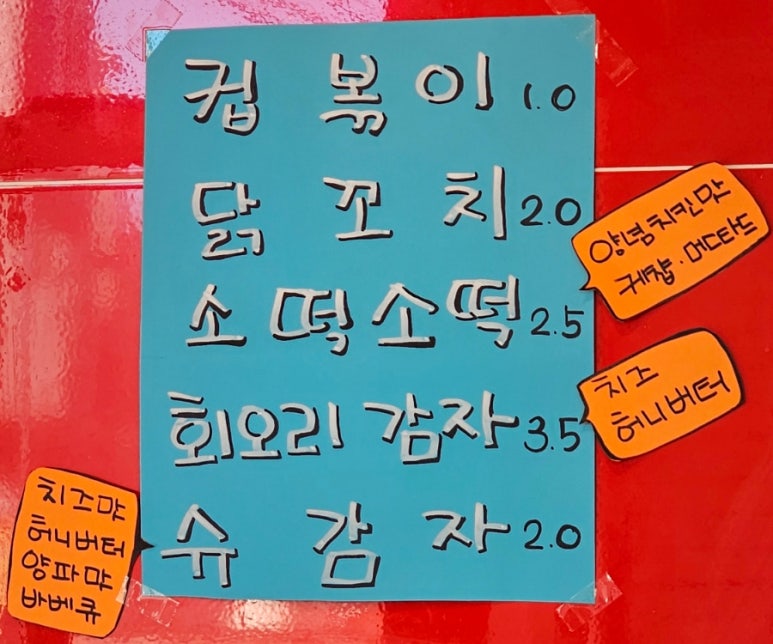 컵볶이 1.0
닭꼬치 2.0
소떡소떡 2.5
양념치킨맛
케챱·머스타드
회오리감자 3.5
치즈
허니버터
슈감자 2.0
치즈맛
허니버터
양파맛
바베큐